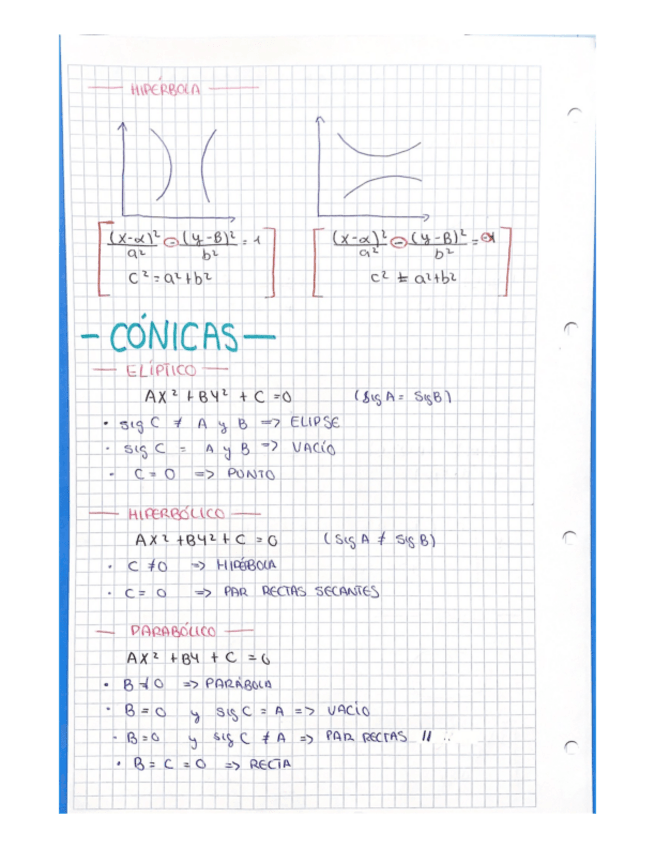 HIPÉRBOLA
(x-α)²/a² - (y-B)²/b² = 1
c² = a²+b²
(x-α)²/a² - (y-B)²/b² =
c² = a²+b²
- CÓNICAS -
ELÍPTICO
AX² + BY² + C = 0 (sig A = sig B)
• sig C ≠ A y B => ELIPSE
• sig C = A y B => VACÍO
• C = 0 => PUNTO
HIPERBÓLICO
AX² + BY² + C = 0 (sig A ≠ sig B)
• C ≠ 0 =>
• C = 0 => PAR RECTAS SECANTES
PARABÓLICO
AX² + BY + C = 0
• B ≠ 0 => PARÁBOLA
• B = 0 y sig C = A => VACÍO
• B = 0 y sig C ≠ A => PAR RECTAS //
• B = C = 0 => RECTA